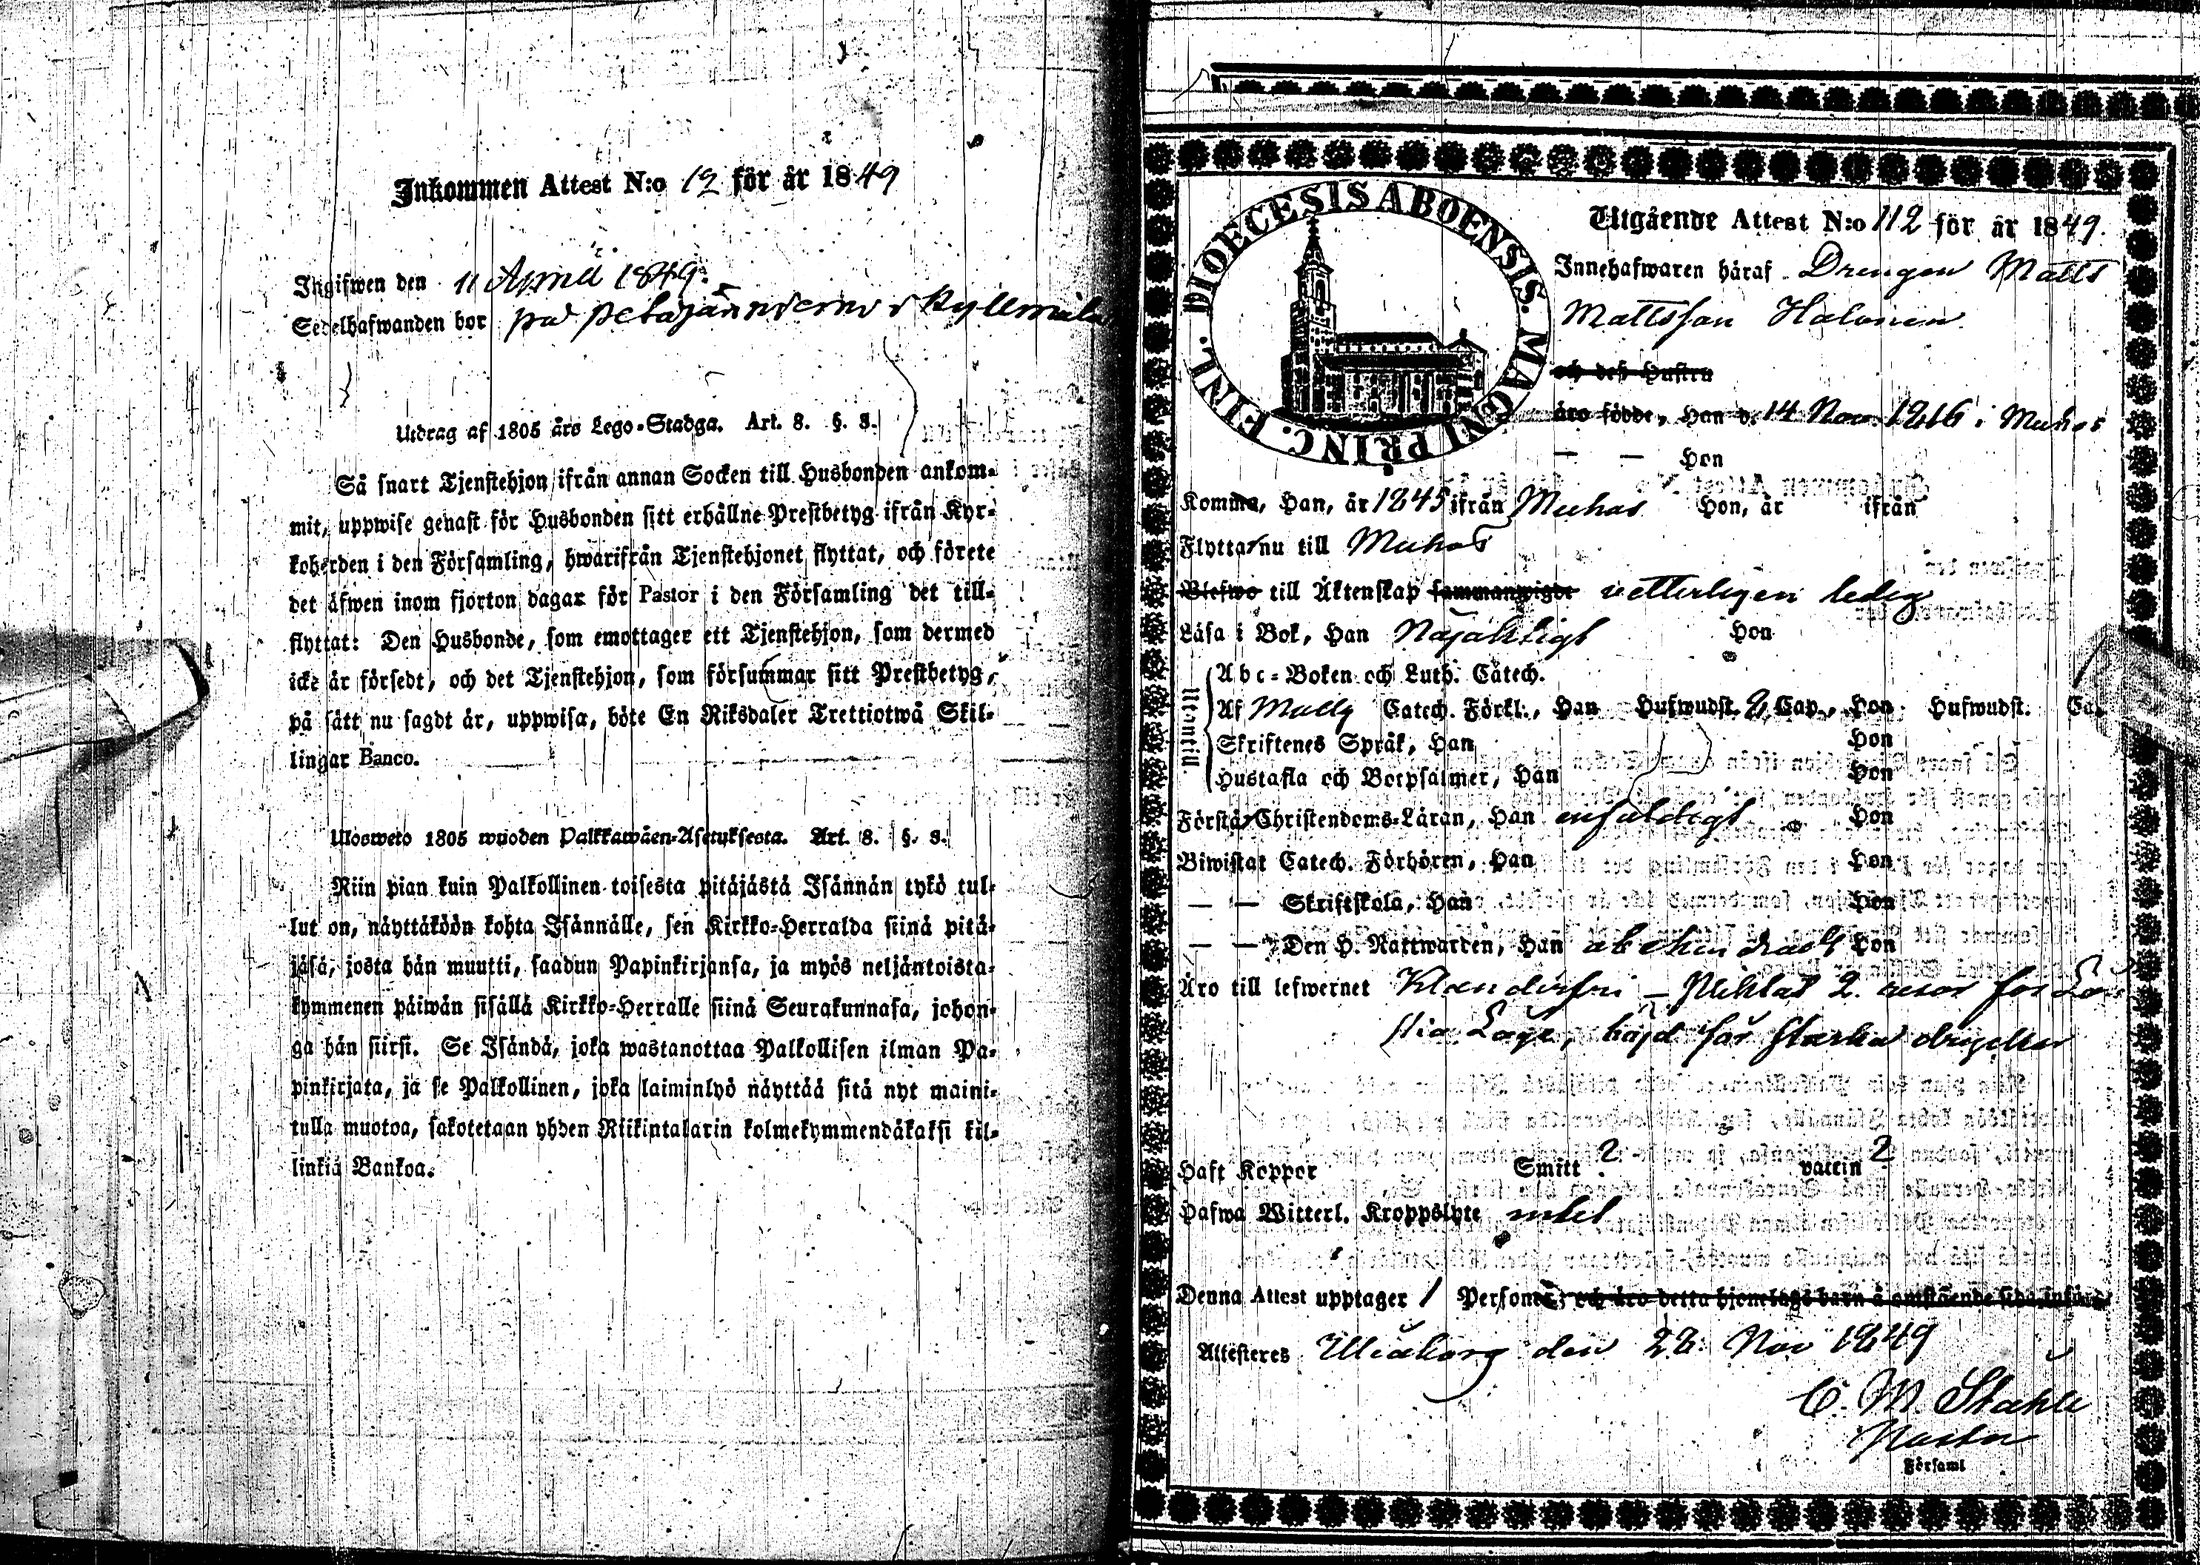 Inkommen Attest N:o 12 för år 1849
Ingifwen den 11 April 1849.
Sedelhafwanden bor på
Utdrag af 1805 års Lego-Stadga. Art. 8. §. 3.
Så snart Tjenstehjon ifrån annan Socken till Husbonden ankom-
mit, uppwise genast för Husbonden sitt erhållne Prestbetyg ifrån Kyr-
koherden i den Församling, hwarifrån Tjenstehjonet flyttat, och förete
det äfwen inom fjorton dagar för Pastor i den Församling det till-
flyttat: Den Husbonde, som emottager ett Tjenstehjon, som dermed
icke är försedt, och det Tjenstehjon, som försummar sitt Prestbetyg,
på sätt nu sagdt är, uppwisa, böte En Riksdaler Trettiotwå Skil-
lingar Banco.
Ulosweto 1805 wuoden Palkkawäen-Asetuksesta. Art. 8. §. 3.
Niin pian kuin Palkollinen toisesta pitäjästä Isännän tykö tul-
lut on, näyttäköön kohta Isännälle, sen Kirkko-Herralda siinä pitä-
jäsä, josta hän muutti, saadun Papinkirjansa, ja myös neljäntoista-
kymmenen päiwän sisällä Kirkko-Herralle siinä Seurakunnasa, johon-
ga hän siirsi. Se Isändä, joka wastanottaa Palkollisen ilman Pa-
pinkirjata, ja se Palkollinen, joka laiminlyö näyttää sitä nyt maini-
tulla muotoa, sakotetaan yhden Riikintalarin kolmekymmendäkaksi kil-
linkiä Bankoa.
DIOECESIS ABOENSIS. MAGNI PRINC. FINL.
Utgående Attest N:o 112 för år 1849.
Innehafwaren häraf Drengen Matts
Mattsson Halonen
och deß Hustru
äro födde, Han d. 14 Nov. 1816 i Muhos
— — Hon
Komma, Han, år 1845 ifrån Muhos Hon, år ifrån
Flytta nu till Muhos
Blefwo till Äktenskap sammanwigde vetterligen ledig
Läsa i Bok, Han Nöjaktigt Hon
Utantill
Abc-Boken och Luth. Catech.
Af Catech. Förkl., Han Hufwudst. 2 Cap., Hon Hufwudst. Ca
Skriftenes Språk, Han Hon
Hustafla och Botpsalmer, Han Hon
Förstå Christendoms-Läran, Han enfaldigt Hon
Biwistat Catech. Förhören, Han Hon
— — Skriftskola, Han Hon
— — Den H. Nattwarden, Han Hon
Äro till lefwernet 2. för
för starka drycker
Haft Koppor Smitt ? vaccin ?
Hafwa Witterl. Kroppslyte intet
Denna Attest upptager 1 Personer, och äro detta hjonelags barn å omstående sida införde
Attesteres Uleåborg den 28 Nov 1849
C. M. Ståhle
Pastor
Församl